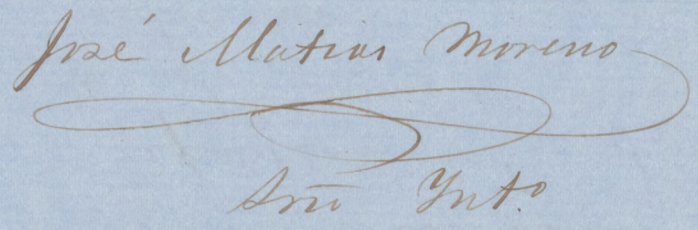 José Matias Moreno
Srio Ynto.